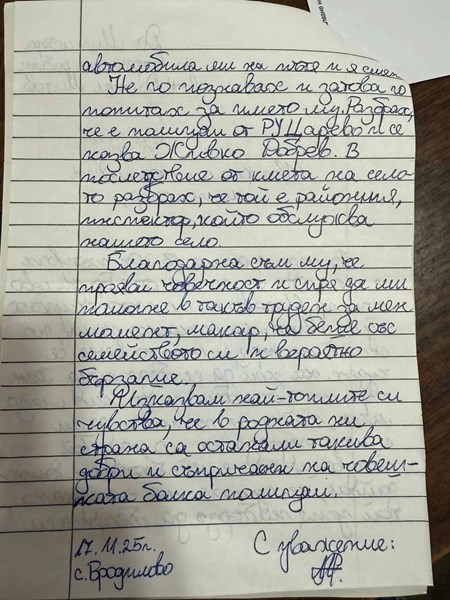 автомобила ми на пътя и я смени
Не го познавах и затова го
попитах за името му. Разбрах,
че е полицай от РУ Царево и се
казва Живко Добрев. В
последствие от кмета на село-
то разбрах, че той е районния,
инспектор, който обслужва
нашето село.
Благодарна съм му, че
прояви човечност и спря да ми
помогне в такъв труден за мен
момент, макар, че беше със
семейството си и вероятно
бързаше.
Изказвам най-топлите си
чувства, че в родната ни
страна са останали такива
добри и съпричастни на човеш-
ката болка полицаи.
17.11.25г.
С уважение:
с. Бродилово